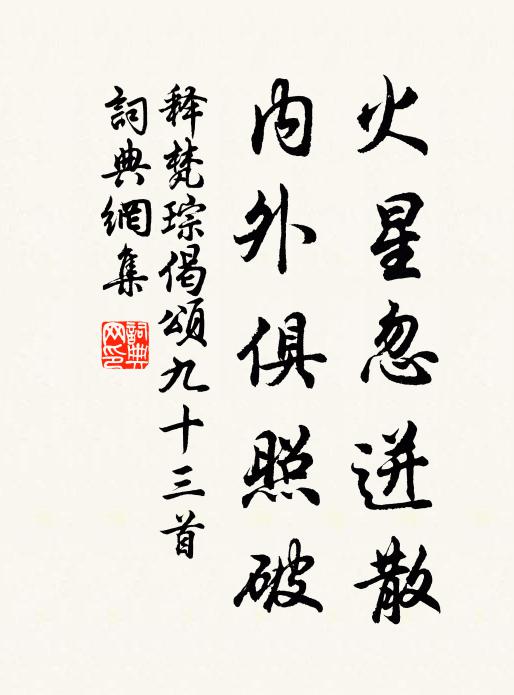 火星忽迸散
内外俱照破
释梵琮偈颂九十三首
詞典網集
詞典
网印